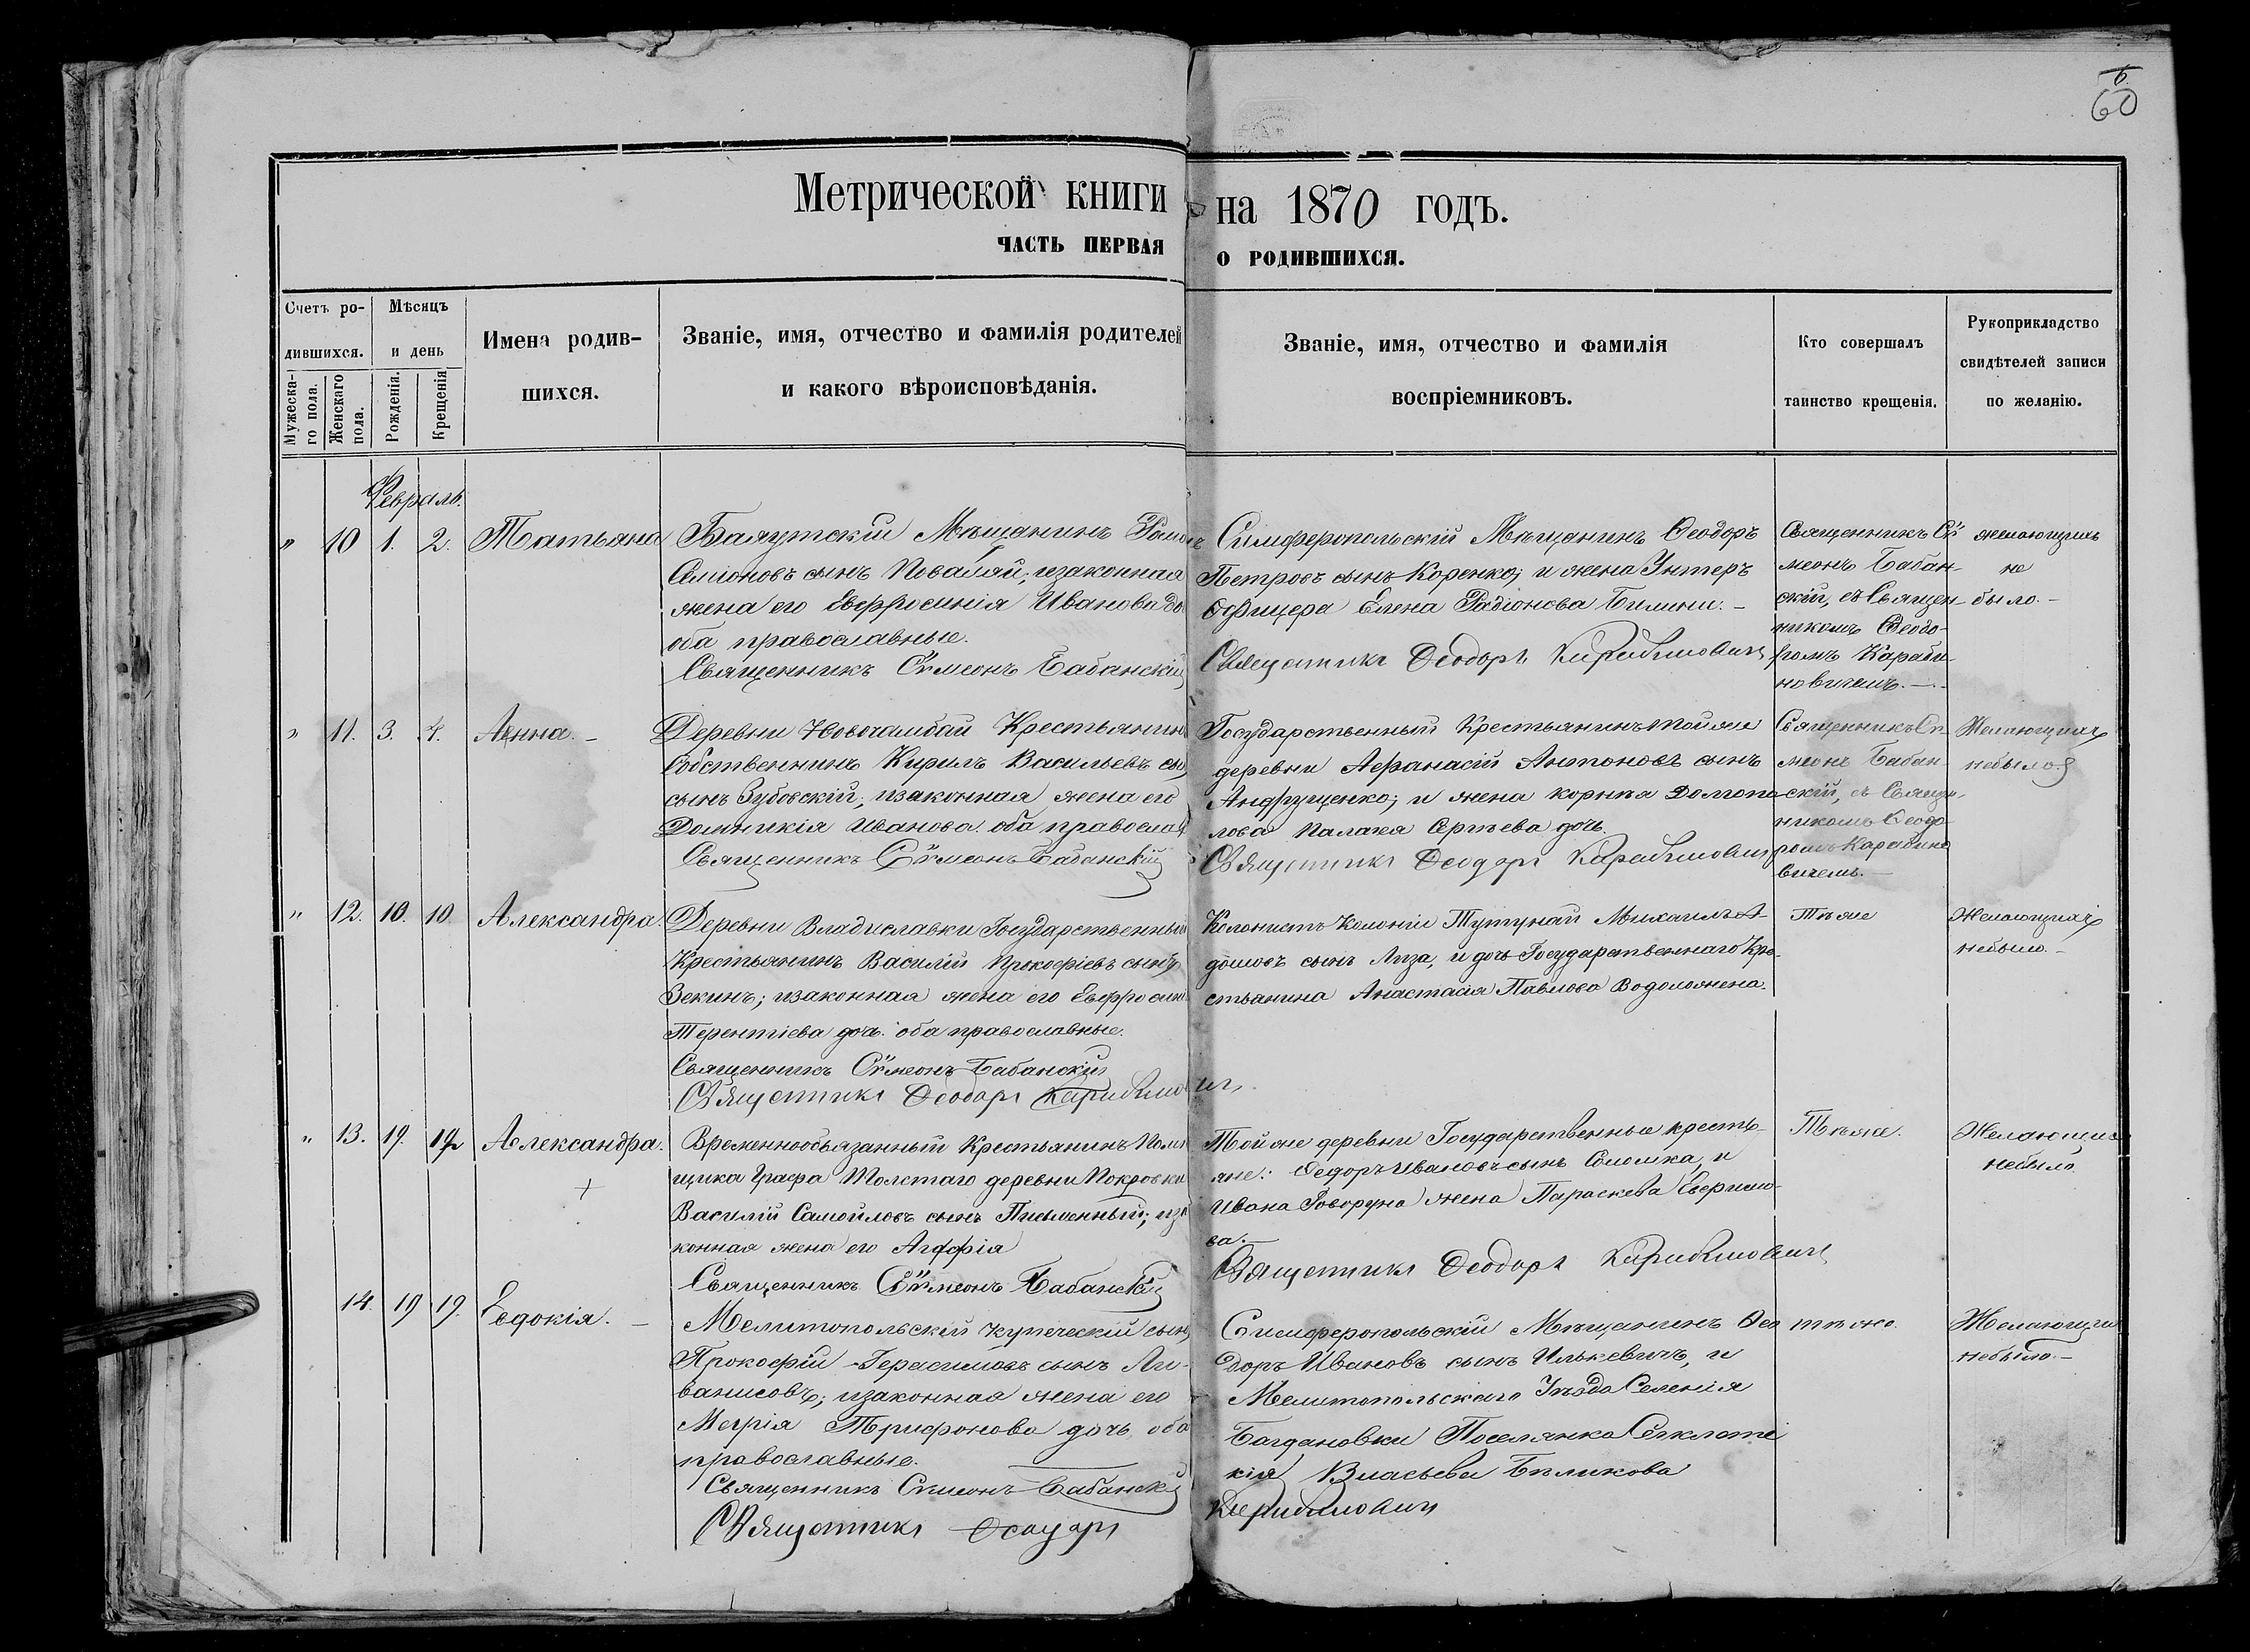 6
60
Метрической книги на 1870 годъ.
ЧАСТЬ ПЕРВАЯ О РОДИВШИХСЯ.
Счетъ ро-
дившихся.
Мужеска-
го пола.
Женскаго
пола.
Мѣсяцъ
и день
Рожденія.
Крещенія
Имена родив-
шихся.
Званіе, имя, отчество и фамилія родителей
и какого вѣроисповѣданія.
Званіе, имя, отчество и фамилія
воспріемниковъ.
Кто совершалъ
таинство крещенія.
Рукоприкладство
свидѣтелей записи
по желанію.
Февраль.
" 10 1. 2. Татьяна
Мѣщанинъ
Семіоновъ сынъ изаконная
жена его Евфросинія Иванова
оба православные.
Священникъ Сѵмеонъ Бабанскій
Симферопольскій Мѣщанинъ Ѳеодоръ
Петровъ сынъ Коренко; и жена Унтеръ
Офицера Елена Радіонова
Священникъ Ѳеодоръ
Священникъ Сѵ
меонъ Бабан-
скій, съ Священ-
никомъ Ѳеодо-
ромъ Караби-
новичемъ.
желающихъ
не
было.
" 11. 3. 4. Анна.
Деревни Крестьянин
Собственникъ Кирилъ Васильевъ
сынъ Зубовскій; изаконная жена его
Домникія Иванова. оба православ
Священникъ Сѵмеонъ Бабанскій
Государственный Крестьянинъ тойже
деревни Афанасій Антоновъ сынъ
Андрущенко; и жена
Палагея Сергѣева дочь.
Священникъ Ѳеодоръ
Священникъ Сѵ
меонъ Бабан
скій, съ Свяще-
никомъ Ѳеодо
ромъ Карабино
вичемъ.
Желающихъ
небыло
" 12. 10. 10. Александра.
Деревни Владиславки Государственный
Крестьянинъ Василій Прокофіевъ сынъ
Зекинъ; изаконная жена его Евфросин
Терентіева дочь. оба православные.
Священникъ Сѵмеонъ Бабанскій
Священникъ Ѳеодоръ
Колонистъ Колоніи Михаилъ
сынъ Лиза, и дочь Государственнаго Кре-
стьянина Анастасія Павлова Водолажена.
Тѣже
Желающихъ
небыло.
" 13. 19. 19 Александра.
Временнообязанный Крестьянинъ Помѣ
щика Графа Толстаго деревни Покровки
Василій Самойловъ сынъ Письменный; иза
конная жена его Агафія
Священникъ Сѵмеонъ Бабанскій
Той же деревни Государственные кресть-
яне: Федоръ Ивановъ сынъ Соломка, и
Ивана Говоруна жена Параскева
ва.
Священникъ Ѳеодоръ
Тѣже.
Желающих
небыло
14. 19 19. Евдокія.
Мелитопольскій купеческій сынъ
Прокофій Герасимовъ сынъ Ли-
ванисовъ; изаконная жена его
Марія Трифонова дочь, оба
православные.
Священникъ Сѵмеонъ Бабанскій
Священникъ Ѳеодоръ
Симферопольскій Мѣщанинъ Ѳео
доръ Ивановъ сынъ Илькевичъ, и
Мелитопольскаго Уѣзда Селенія
Богдановки Поселянка
кія Власьева Бѣликова
тѣже.
Желающих
небыло.